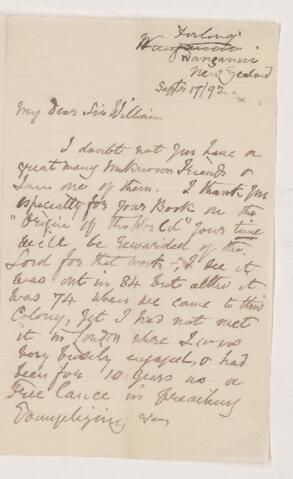 Fordongs
Wanganui
Wanganui
New Zealand
Septr 17/92
My Dear Sir William
I doubt not you have a
great many unknown Friends &
I am one of them. I thank you
especially for your Book on the
"Origin of the World" Your time
will be rewarded of the
Lord for that work; I see it
was out in 84 but altho it
was 74 when we came to this
Colony, yet I had not met
it in London where I was
very busily engaged, & had
been for 10 years as a
Free lance in preaching
Evangelizing &c